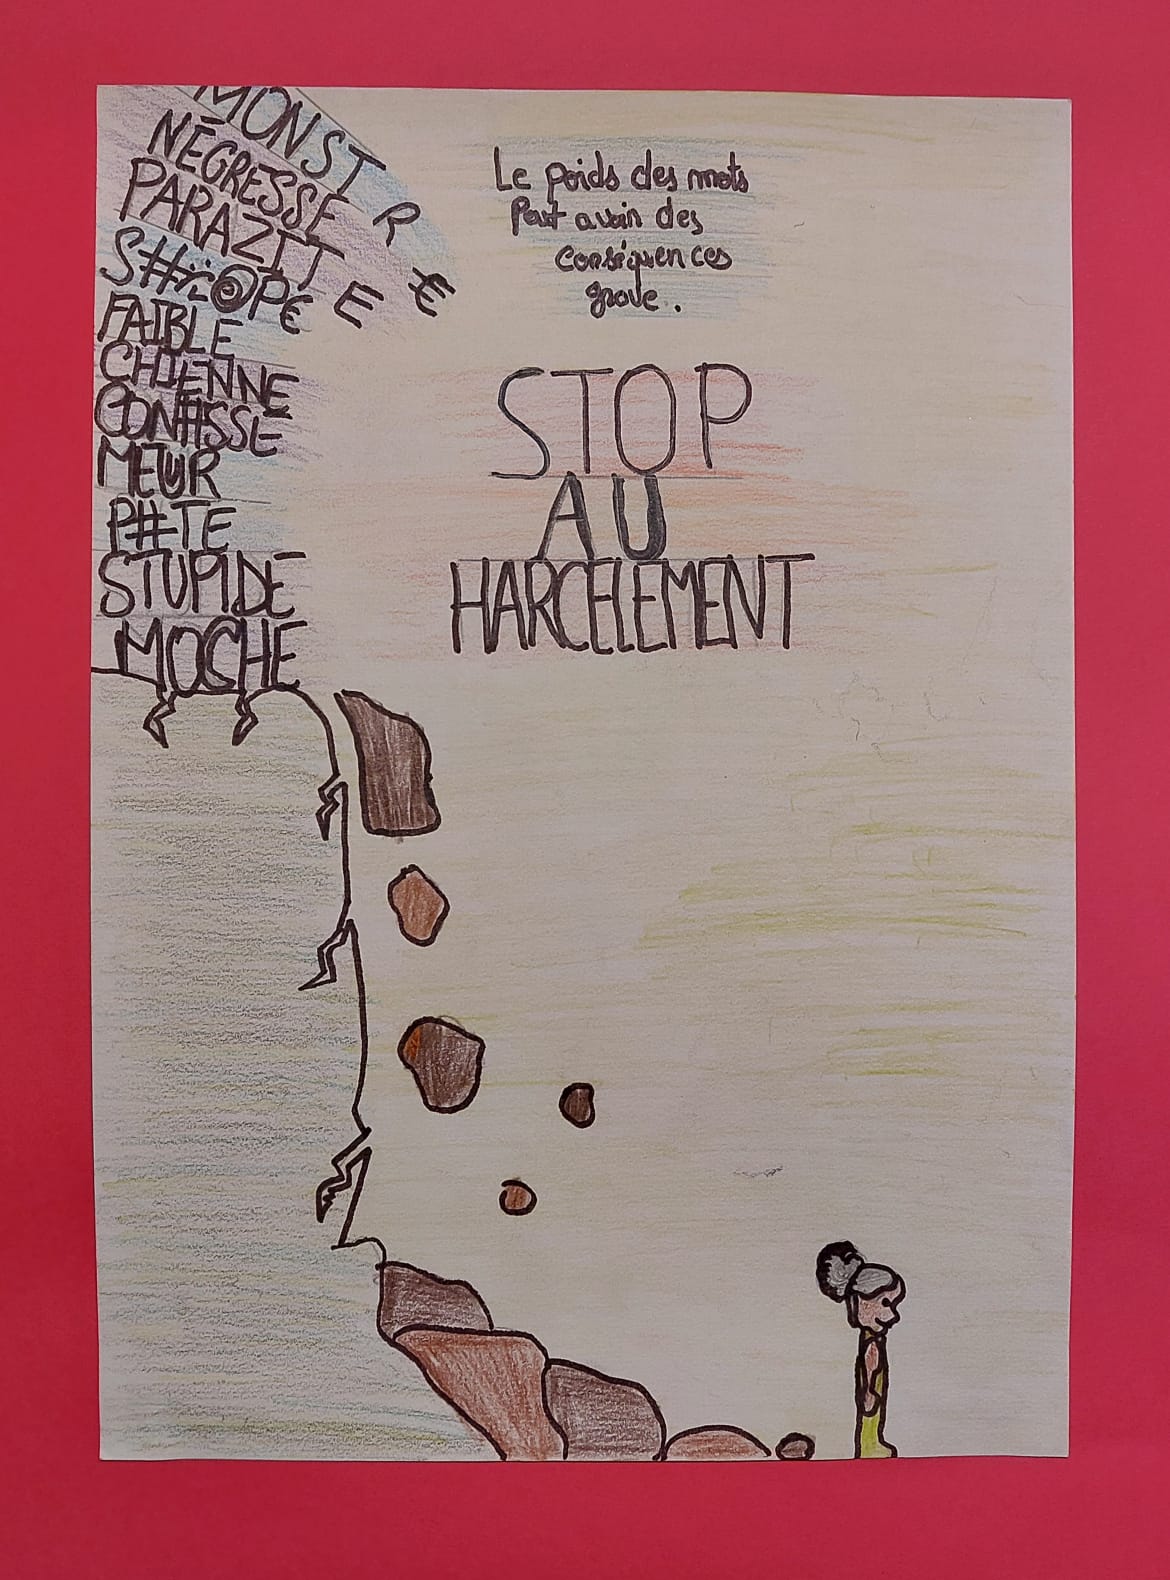 MONSTR€
NÉGRESSE
PARAZITE
S#ï@P€
FAIBLE
CHIENNE
CON#SSE
MEUR
P#TE
STUPIDE
MOCHE
Le poids des mots
Peut avoir des
conséquences
grave.
STOP
AU
HARCELEMENT